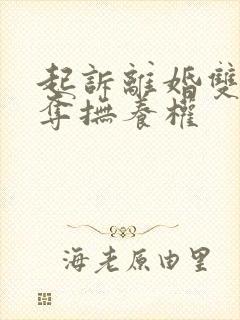 起訴離婚雙
奪撫養權
海老原由里